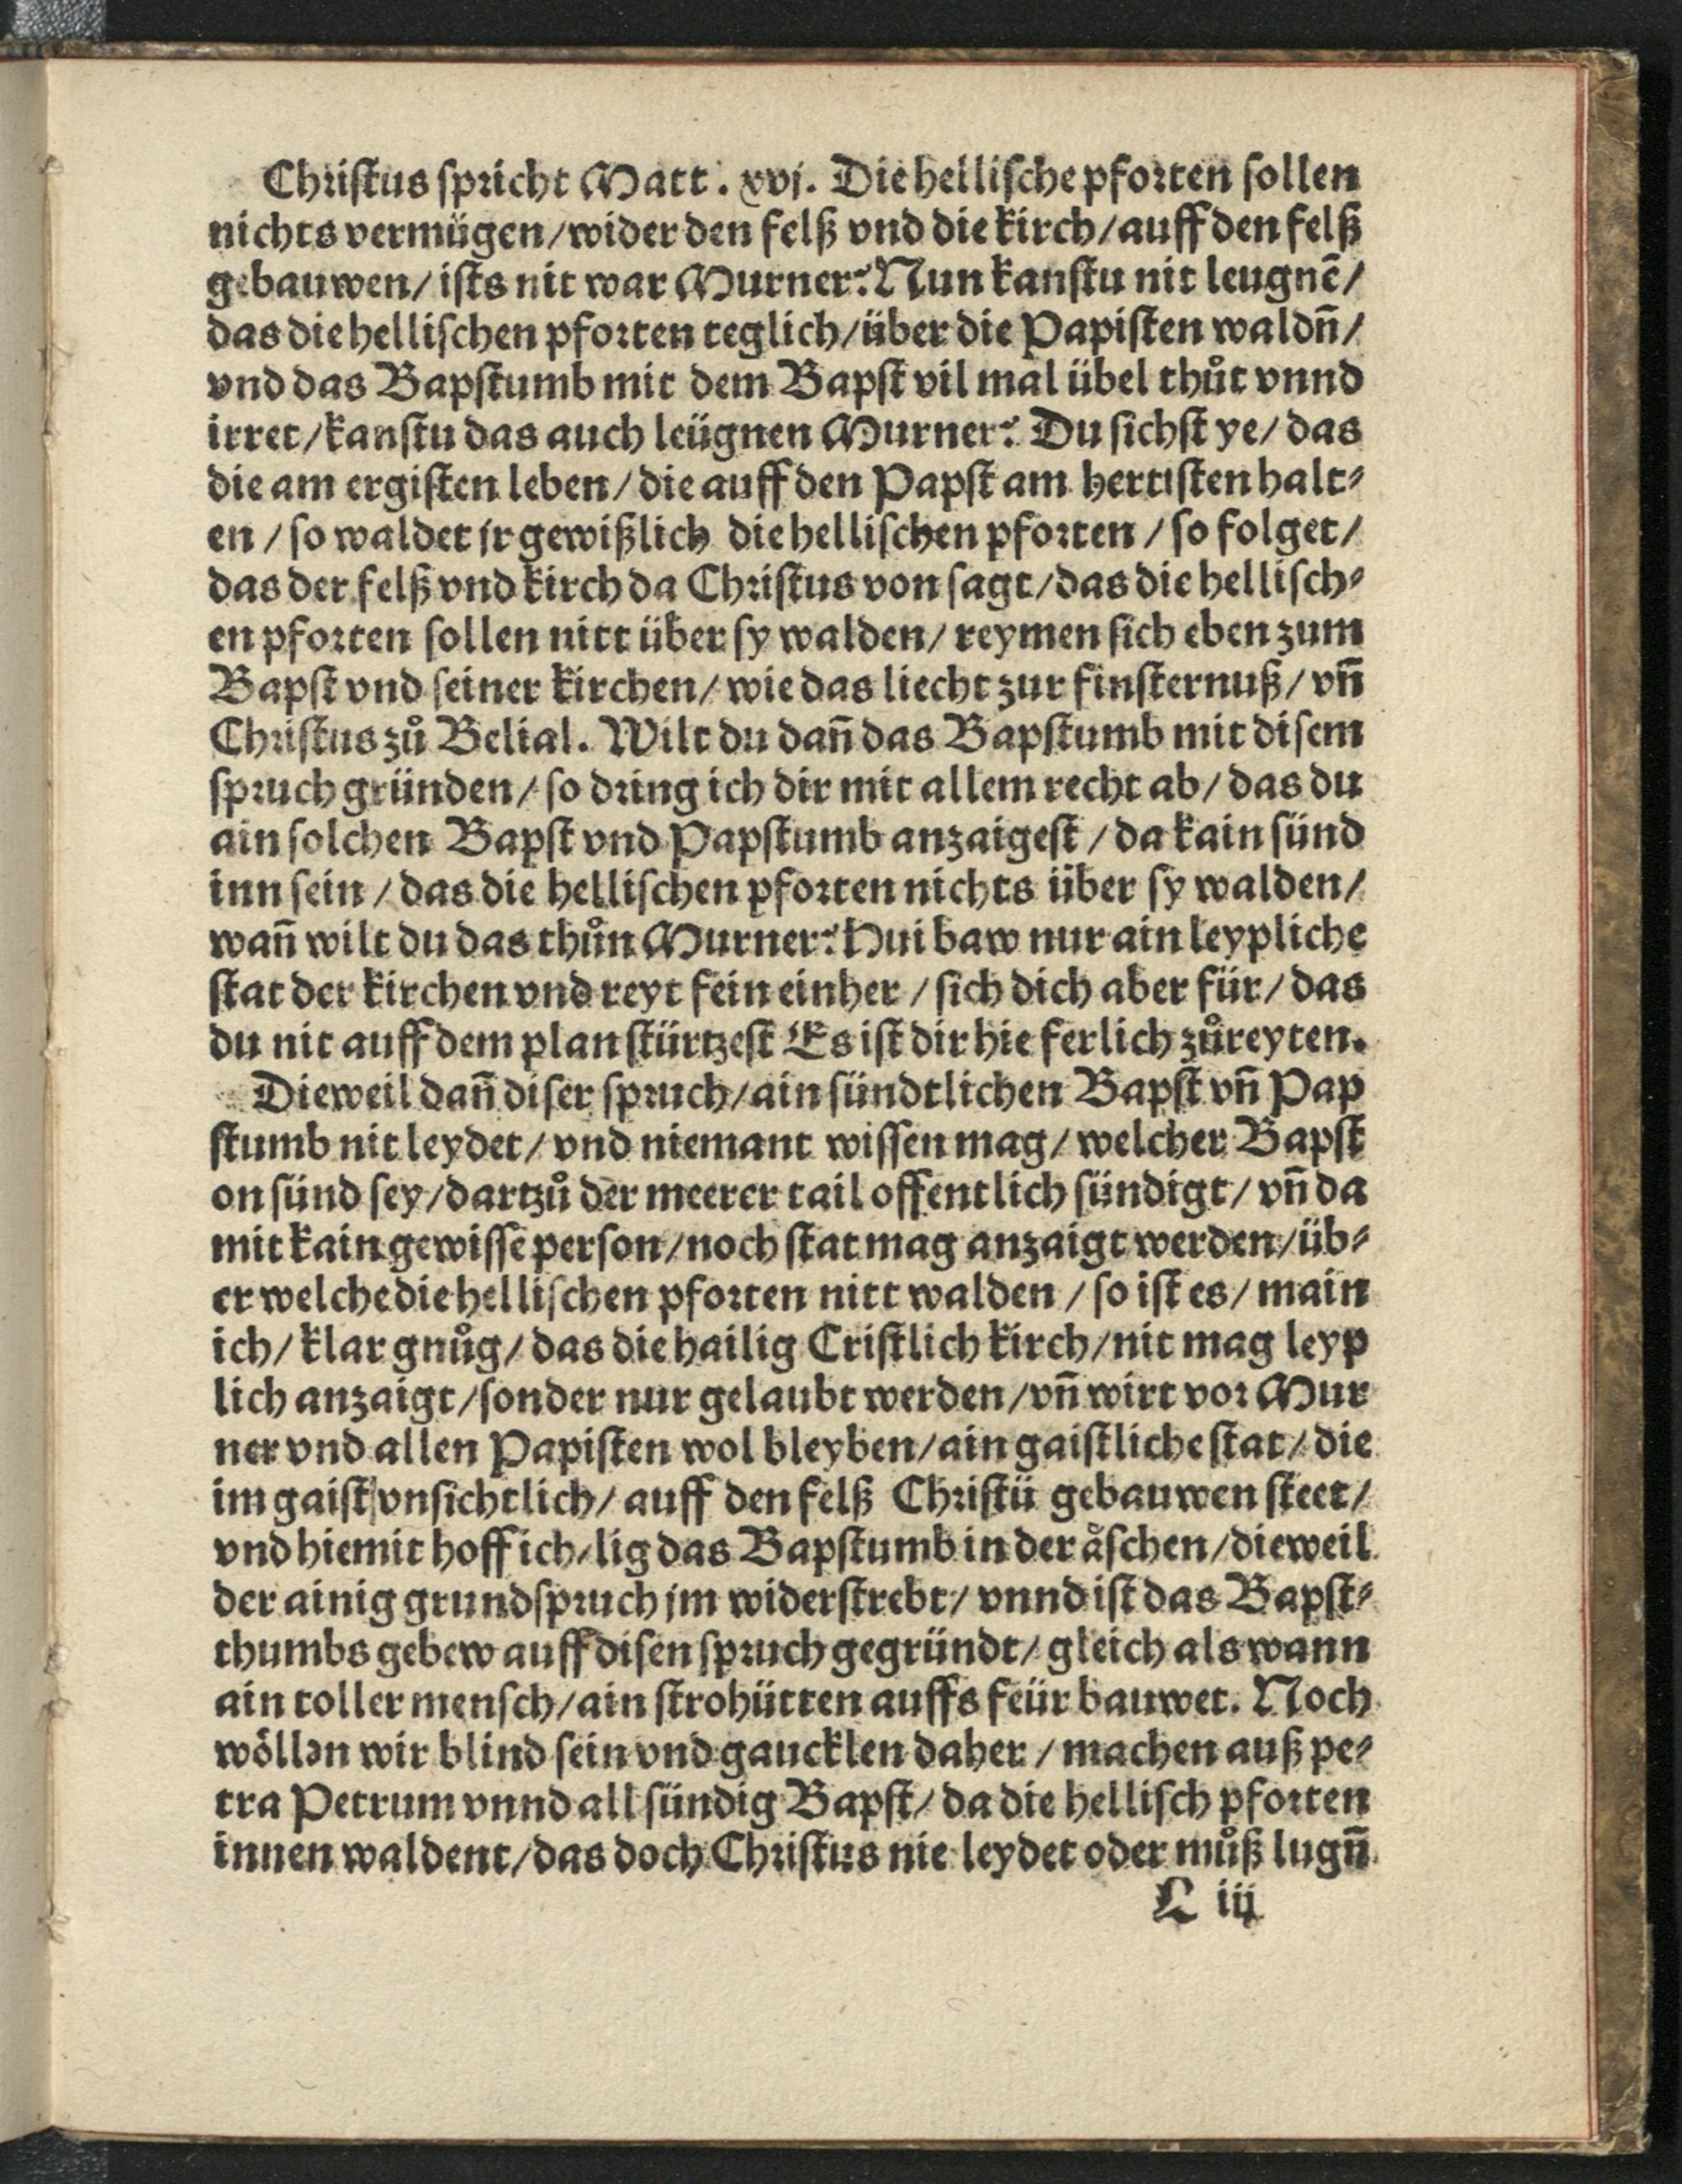 Chriſtus ſpricht Matt. xvj. Die helliſche pforten ſollen
nichts vermügen/wider den felß vnd die kirch/auff den felß
gebauwen/ iſts nit war Murner? Nun kanſtu nit leugnē/
das die helliſchen pforten teglich/über die Papiſten waldn̄/
vnd das Bapſtumb mit dem Bapſt vil mal übel thůt vnnd
irret/kanſtu das auch leügnen Murner? Du ſichſt ye/ das
die am ergiſten leben/die auff den Papſt am hertiſten halt⸗
en/ſo waldet jr gewißlich die helliſchen pforten/ſo folget/
das der felß vnd kirch da Chriſtus von ſagt/das die helliſch⸗
en pforten ſollen nitt über ſy walden/ reymen ſich eben zum
Bapſt vnd ſeiner kirchen/ wie das liecht zur finſternuß/ vn̄
Chriſtus zů Belial. Wilt du dan̄ das Bapſtumb mit diſem
ſpruch gründen/ ſo dring ich dir mit allem recht ab/ das du
ain ſolchen Bapſt vnd Papſtumb anzaigeſt/da kain ſünd
inn ſein/das die helliſchen pforten nichts über ſy walden/
wan̄ wilt du das thůn Murner? Hui baw nur ain leypliche
ſtat der kirchen vnd reyt fein einher/ſich dich aber für/das
du nit auff dem plan ſtürtzeſt Es iſt dir hie ferlich zůreyten.
Dieweil dan̄ diſer ſpruch/ain ſündtlichen Bapſt vn̄ Pap
ſtumb nit leydet/vnd niemant wiſſen mag/welcher Bapſt
on ſünd ſey/dartzů der meerer tail offentlich ſündigt/vn̄ da
mit kain gewiſſe perſon/noch ſtat mag anzaigt werden/üb⸗
er welche die helliſchen pforten nitt walden/ſo iſt es/main
ich/klar gnůg/das die hailig Criſtlich kirch/nit mag leyp
lich anzaigt/ſonder nur gelaubt werden/vn̄ wirt vor Mur
ner vnd allen Papiſten wol bleyben/ain gaiſtliche ſtat/die
im gaiſt vnſichtlich/ auff den felß Chriſtü gebauwen ſteet/
vnd hiemit hoff ich/lig das Bapſtumb in der åſchen/dieweil
der ainig grundſpruch jm widerſtrebt/ vnnd iſt das Bapſt⸗
thumbs gebew auff diſen ſpruch gegründt/gleich als wann
ain toller menſch/ain ſtrohütten auffs feür bauwet. Noch
wöllen wir blind ſein vnd gaucklen daher/machen auß pe⸗
tra Petrum vnnd all ſündig Bapſt/da die helliſch pforten
innen waldent/das doch Chriſtus nie leydet oder můß lugn̄
L iij